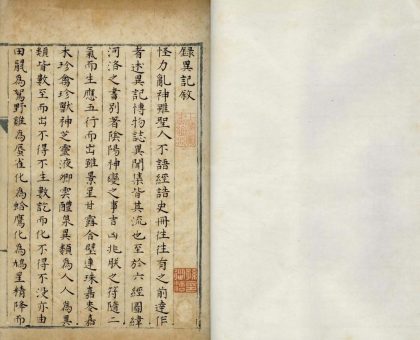 錄異記敘
怪力亂神雖聖人不語經誥史冊往往有之前達作
者述異記博物誌異聞集皆其流也至於六經圖緯
河洛之書別著陰陽神變之事吉凶兆朕之符隨二
氣而生應五行而出雖景星甘露合璧連珠嘉麥嘉
禾珍禽珍獸神芝靈液卿雲醴泉異類為人人為異
類皆數至而出不得不生數訖而化不得不沒亦由
田鼠為鴽野雞為蜃雀化為蛤鷹化為鳩星精降而